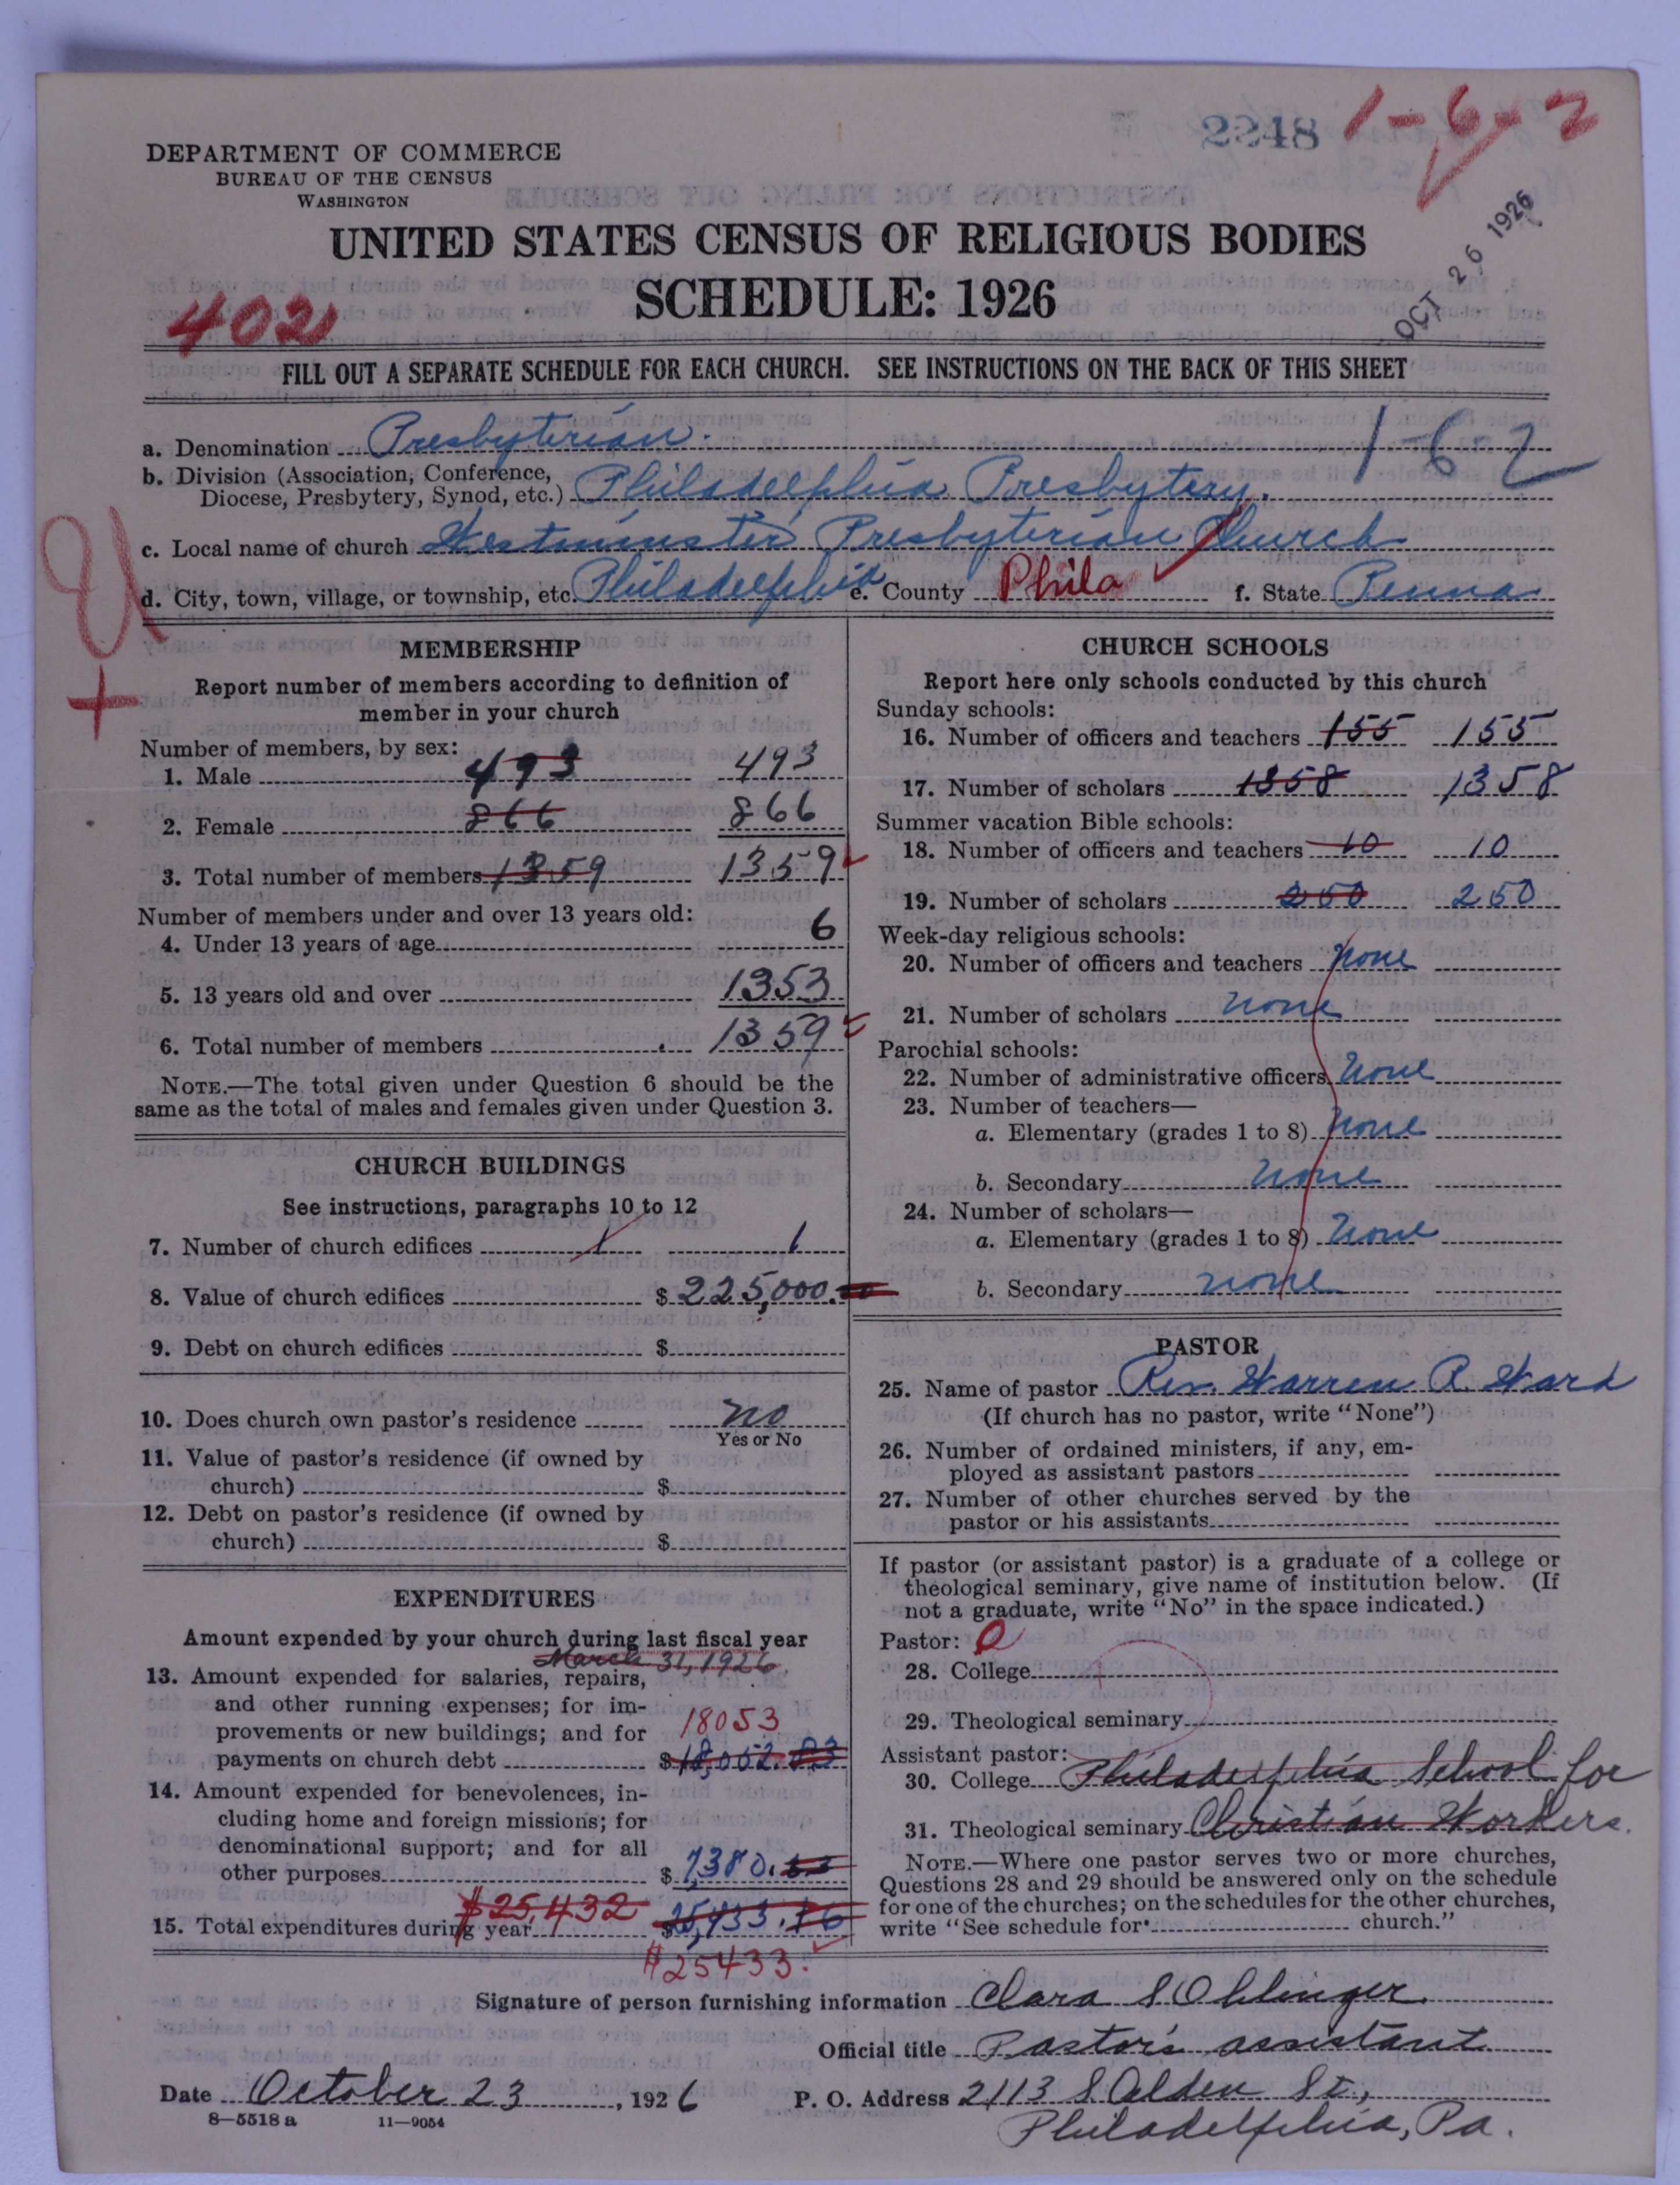 2248 1-6-2
DEPARTMENT OF COMMERCE
BUREAU OF THE CENSUS
WASHINGTON
OCT 26 1926
UNITED STATES CENSUS OF RELIGIOUS BODIES
SCHEDULE: 1926
402
FILL OUT A SEPARATE SCHEDULE FOR EACH CHURCH. SEE INSTRUCTIONS ON THE BACK OF THIS SHEET
a. Denomination Presbyterian. 1-6-2
b. Division (Association, Conference,
Diocese, Presbytery, Synod, etc.) Philadelphia Presbytery.
c. Local name of church Westminster Presbyterian Church
d. City, town, village, or township, etc. Philadelphia e. County Phila f. State Penna
MEMBERSHIP
Report number of members according to definition of
member in your church
Number of members, by sex:
1. Male 493 493
2. Female 866 866
3. Total number of members 1359 1359
Number of members under and over 13 years old:
4. Under 13 years of age 6
5. 13 years old and over 1353
6. Total number of members 1359
NOTE.—The total given under Question 6 should be the
same as the total of males and females given under Question 3.
CHURCH BUILDINGS
See instructions, paragraphs 10 to 12
7. Number of church edifices 1 1
8. Value of church edifices $ 225,000.00
9. Debt on church edifices $
10. Does church own pastor's residence no
Yes or No
11. Value of pastor's residence (if owned by
church) $
12. Debt on pastor's residence (if owned by
church) $
EXPENDITURES
Amount expended by your church during last fiscal year
March 31, 1926.
13. Amount expended for salaries, repairs,
and other running expenses; for im-
provements or new buildings; and for 18053
payments on church debt $ 18,052.83
14. Amount expended for benevolences, in-
cluding home and foreign missions; for
denominational support; and for all
other purposes $ 7380.
15. Total expenditures during year $25,432 $ 25,433.16
$25433.
CHURCH SCHOOLS
Report here only schools conducted by this church
Sunday schools:
16. Number of officers and teachers 155 155
17. Number of scholars 1358 1358
Summer vacation Bible schools:
18. Number of officers and teachers 10 10
19. Number of scholars 250 250
Week-day religious schools:
20. Number of officers and teachers none
21. Number of scholars none
Parochial schools:
22. Number of administrative officers none
23. Number of teachers—
a. Elementary (grades 1 to 8) none
b. Secondary none
24. Number of scholars—
a. Elementary (grades 1 to 8) none
b. Secondary none
PASTOR
25. Name of pastor Rev. Warren R. Ward
(If church has no pastor, write "None")
26. Number of ordained ministers, if any, em-
ployed as assistant pastors
27. Number of other churches served by the
pastor or his assistants
If pastor (or assistant pastor) is a graduate of a college or
theological seminary, give name of institution below. (If
not a graduate, write "No" in the space indicated.)
Pastor: 0
28. College
29. Theological seminary
Assistant pastor:
30. College Philadelphia School for
31. Theological seminary Christian Workers.
NOTE.—Where one pastor serves two or more churches,
Questions 28 and 29 should be answered only on the schedule
for one of the churches; on the schedules for the other churches,
write "See schedule for church."
Signature of person furnishing information Clara S. Ohlinger
Official title Pastor's assistant
Date October 23, 1926 P. O. Address 2113 S. Alden St.,
8—5518 a 11—9054 Philadelphia, Pa.